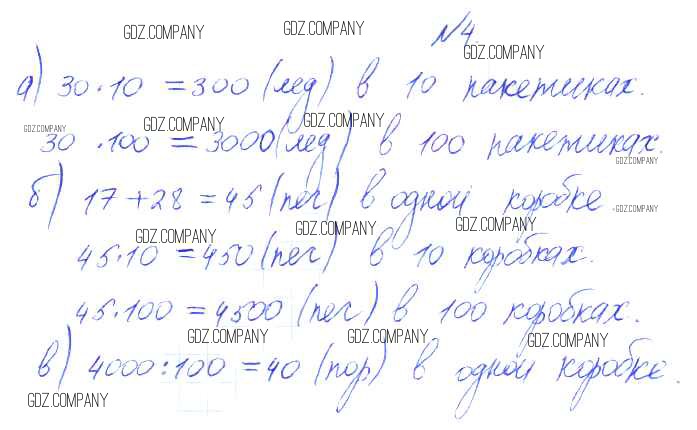 GDZ.COMPANY GDZ.COMPANY №4.
GDZ.COMPANY
а) 30·10 = 300 (лед) в 10 пакетиках.
GDZ.COMPANY GDZ.COMPANY GDZ.COMPANY
30 ·100 = 3000 (лед) в 100 пакетиках.
GDZ.COMPANY
б) 17+28 = 45 (печ) в одной коробке.
GDZ.COMPANY
GDZ.COMPANY GDZ.COMPANY GDZ.COMPANY
45·10 = 450 (печ) в 10 коробках.
45·100 = 4500 (печ) в 100 коробках.
GDZ.COMPANY GDZ.COMPANY GDZ.COMPANY
в) 4000:100 = 40 (пор) в одной коробке.
GDZ.COMPANY